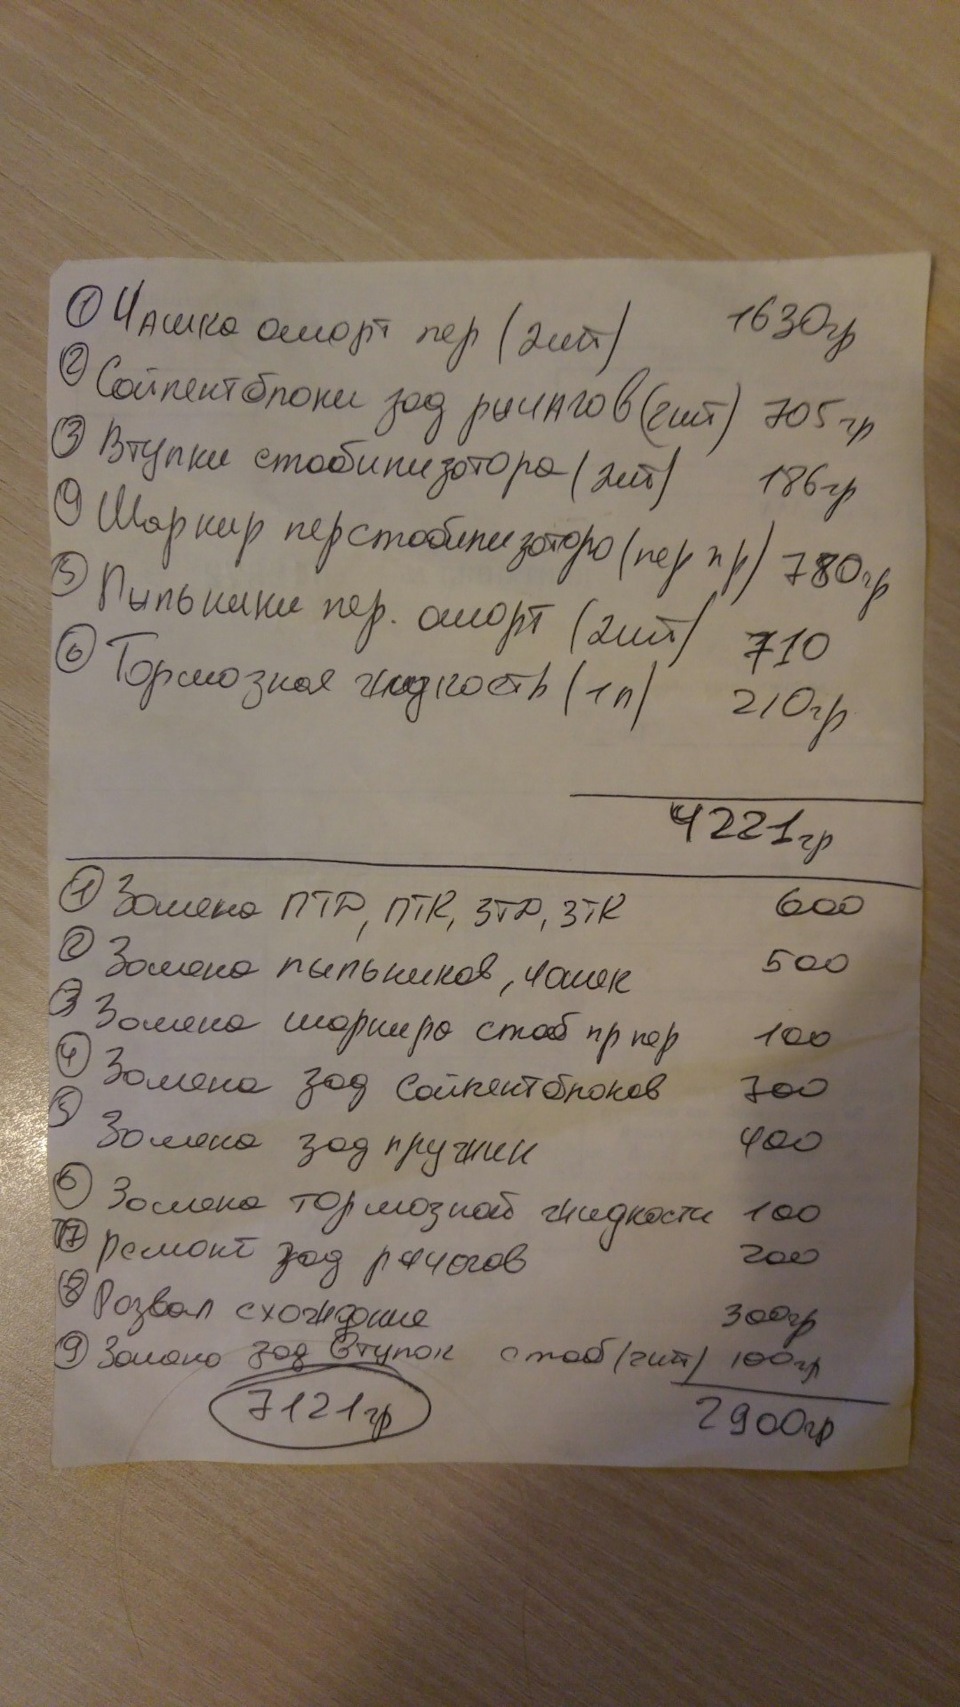 ① Чашка аморт пер (2шт) 1630гр
② Сайлентблоки зад рычагов (2шт) 705гр
③ Втулки стабилизатора (2шт) 186гр
④ Шарнир пер стабилизатора (пер пр) 780гр
⑤ Пыльники пер. аморт (2шт) 710
⑥ Тормозная жидкость (1л) 210гр
4221гр
① Замена ПТД, ПТК, ЗТД, ЗТК 600
② Замена пыльников, чашек 500
③ Замена шарнира стаб пр пер 100
④ Замена зад сайлентблоков 700
⑤ Замена зад пружин 400
⑥ Замена тормозной жидкости 100
⑦ Ремонт зад рычагов 200
⑧ Развал схождение 300гр
⑨ Замена зад втулок стаб (2шт) 100гр
7121гр 2900гр